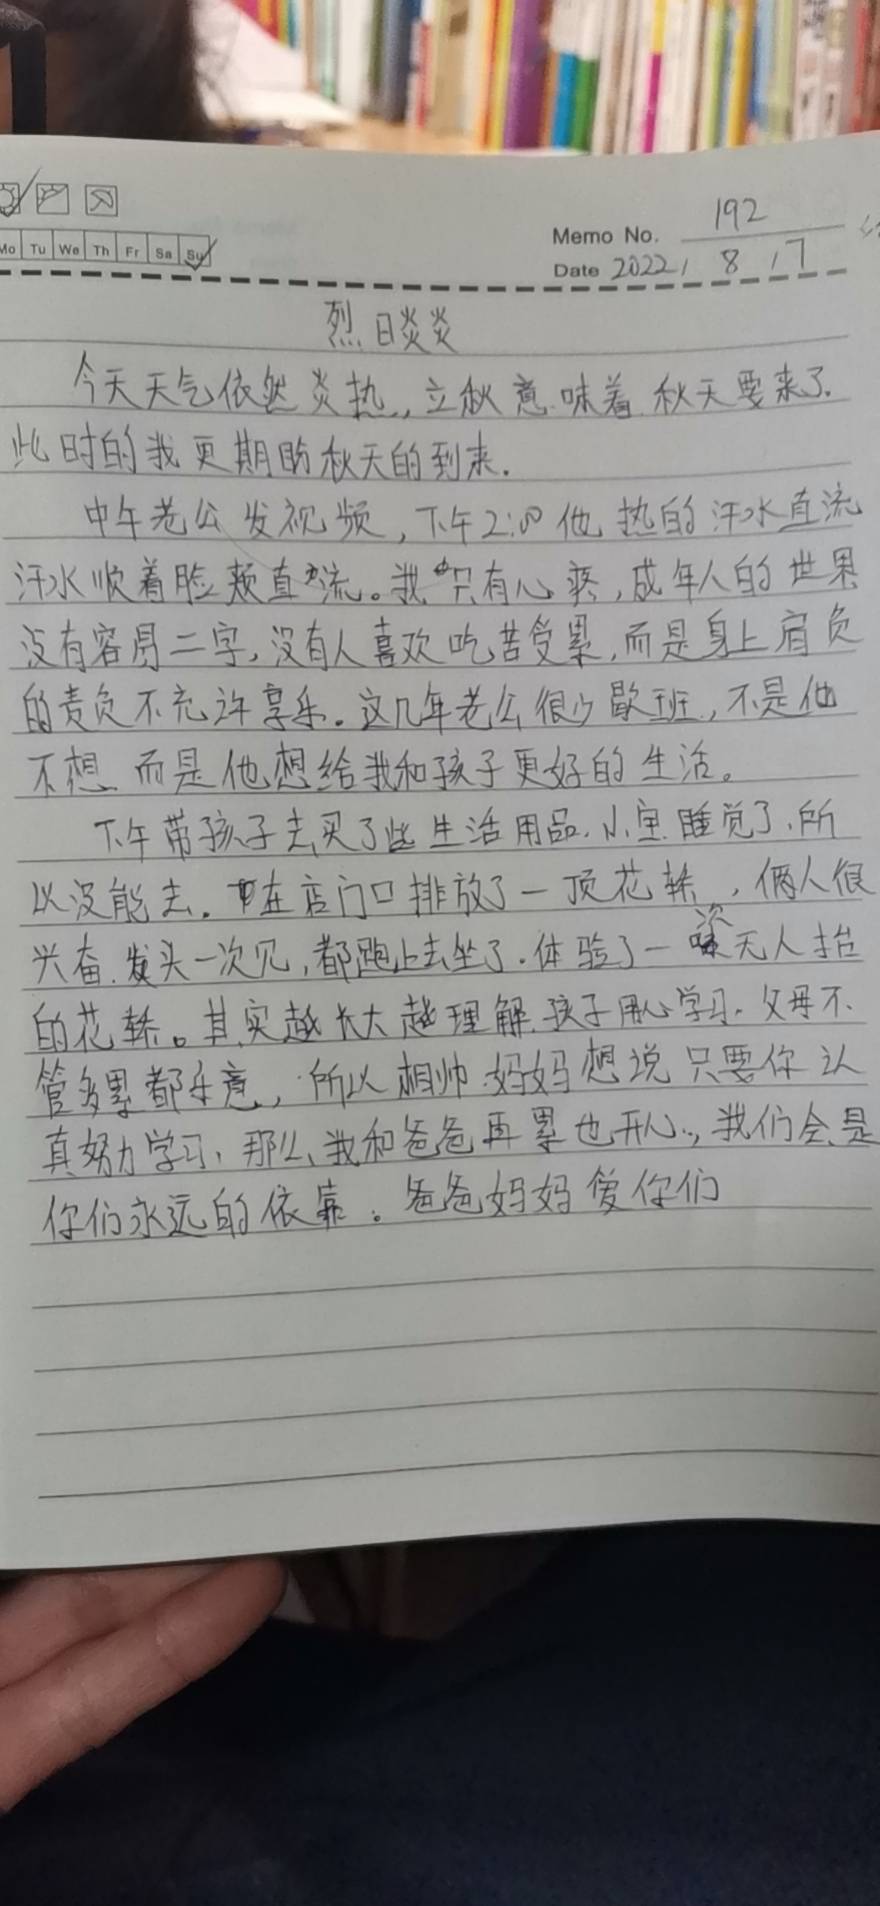 Mo Tu We Th Fr Sa Su
Memo No. 192
Date 2022 / 8 / 7
烈日炎炎
今天天气依然炎热,立秋意味着秋天要来了.
此时的我更期盼秋天的到来.
中午老公发视频,下午2:00他热的汗水直流
汗水顺着脸颊直流。我只有心疼,成年人的世界
没有容易二字,没有人喜欢吃苦受累,而是身上肩负
的责负不充许享乐。这几年老公很少歇班,不是他
不想 而是他想给我和孩子更好的生活。
下午带孩子去买了些生活用品.小宝睡觉了.所
以没能去.在店门口排放了一顶花轿,俩人很
兴奋.发头一次见,都跑上去坐了.体验了一次无人抬
的花轿。其实越长大越理解.孩子用心学习.父母不
管多累都乐意,所以相帅妈妈想说只要你认
真努力学习,那么我和爸爸再累也开心,我们会是
你们永远的依靠。爸爸妈妈爱你们